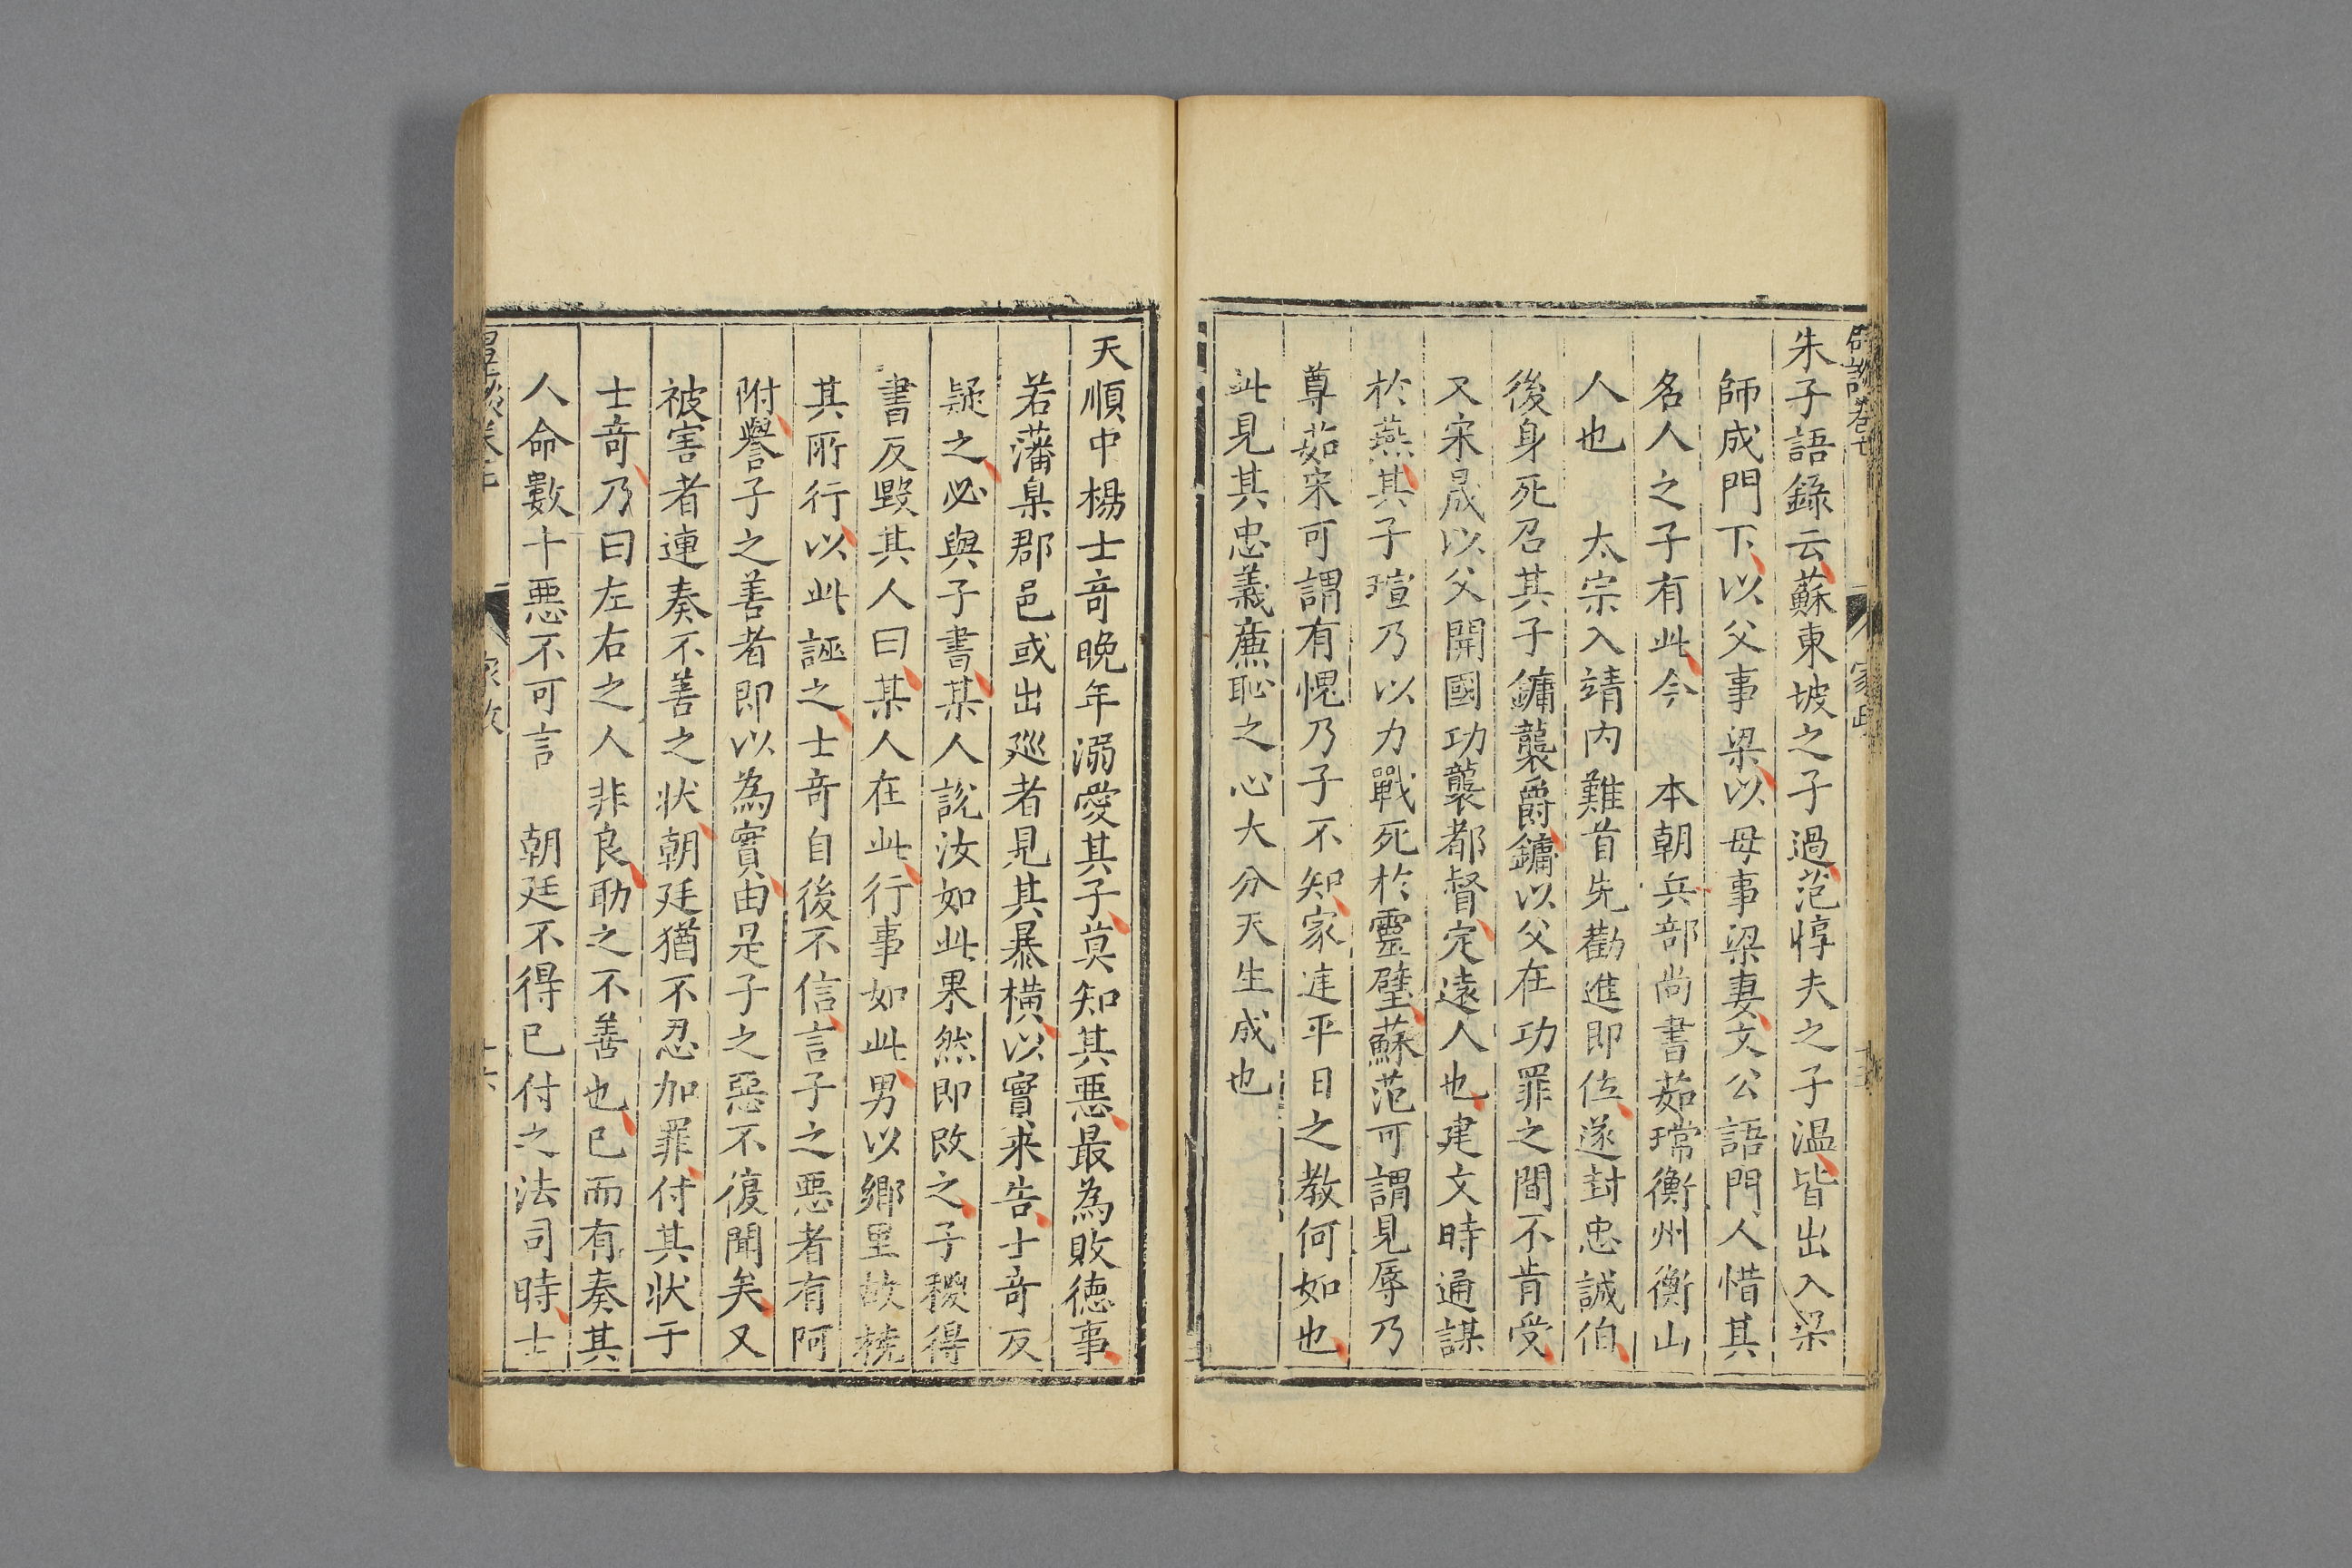 朱子語錄云蘇東坡之子過范惇夫之子温皆出入梁
師成門下以父事梁以母事梁妻文公語門人惜其
名人之子有此今 本朝兵部尚書茹瑺衡州衡山
人也 太宗入靖内難首先勸進即位遂封忠誠伯
後身死召其子鏞襲爵鏞以父在功罪之間不肯受
又宋晟以父開國功襲都督定遠人也建文時通謀
於燕其子瑄乃以力戰死於靈璧蘇范可謂見辱乃
尊茹宋可謂有愧乃子不知家庭平日之教何如也
此見其忠義廉恥之心大分天生成也
天順中楊士竒晚年溺愛其子莫知其悪最為敗德事
若藩臬郡邑或出廵者見其暴橫以實来告士竒反
疑之必與子書某人說汝如此果然即改之子稷得
書反毀其人曰某人在此行事如此男以鄉里故撓
其所行以此誣之士竒自後不信言子之悪者有阿
附譽子之善者即以為實由是子之惡不復聞矣又
被害者連奏不善之状朝廷猶不忍加罪付其状于
士竒乃曰左右之人非良助之不善也已而有奏其
人命數十悪不可言 朝廷不得已付之法司時士
家教